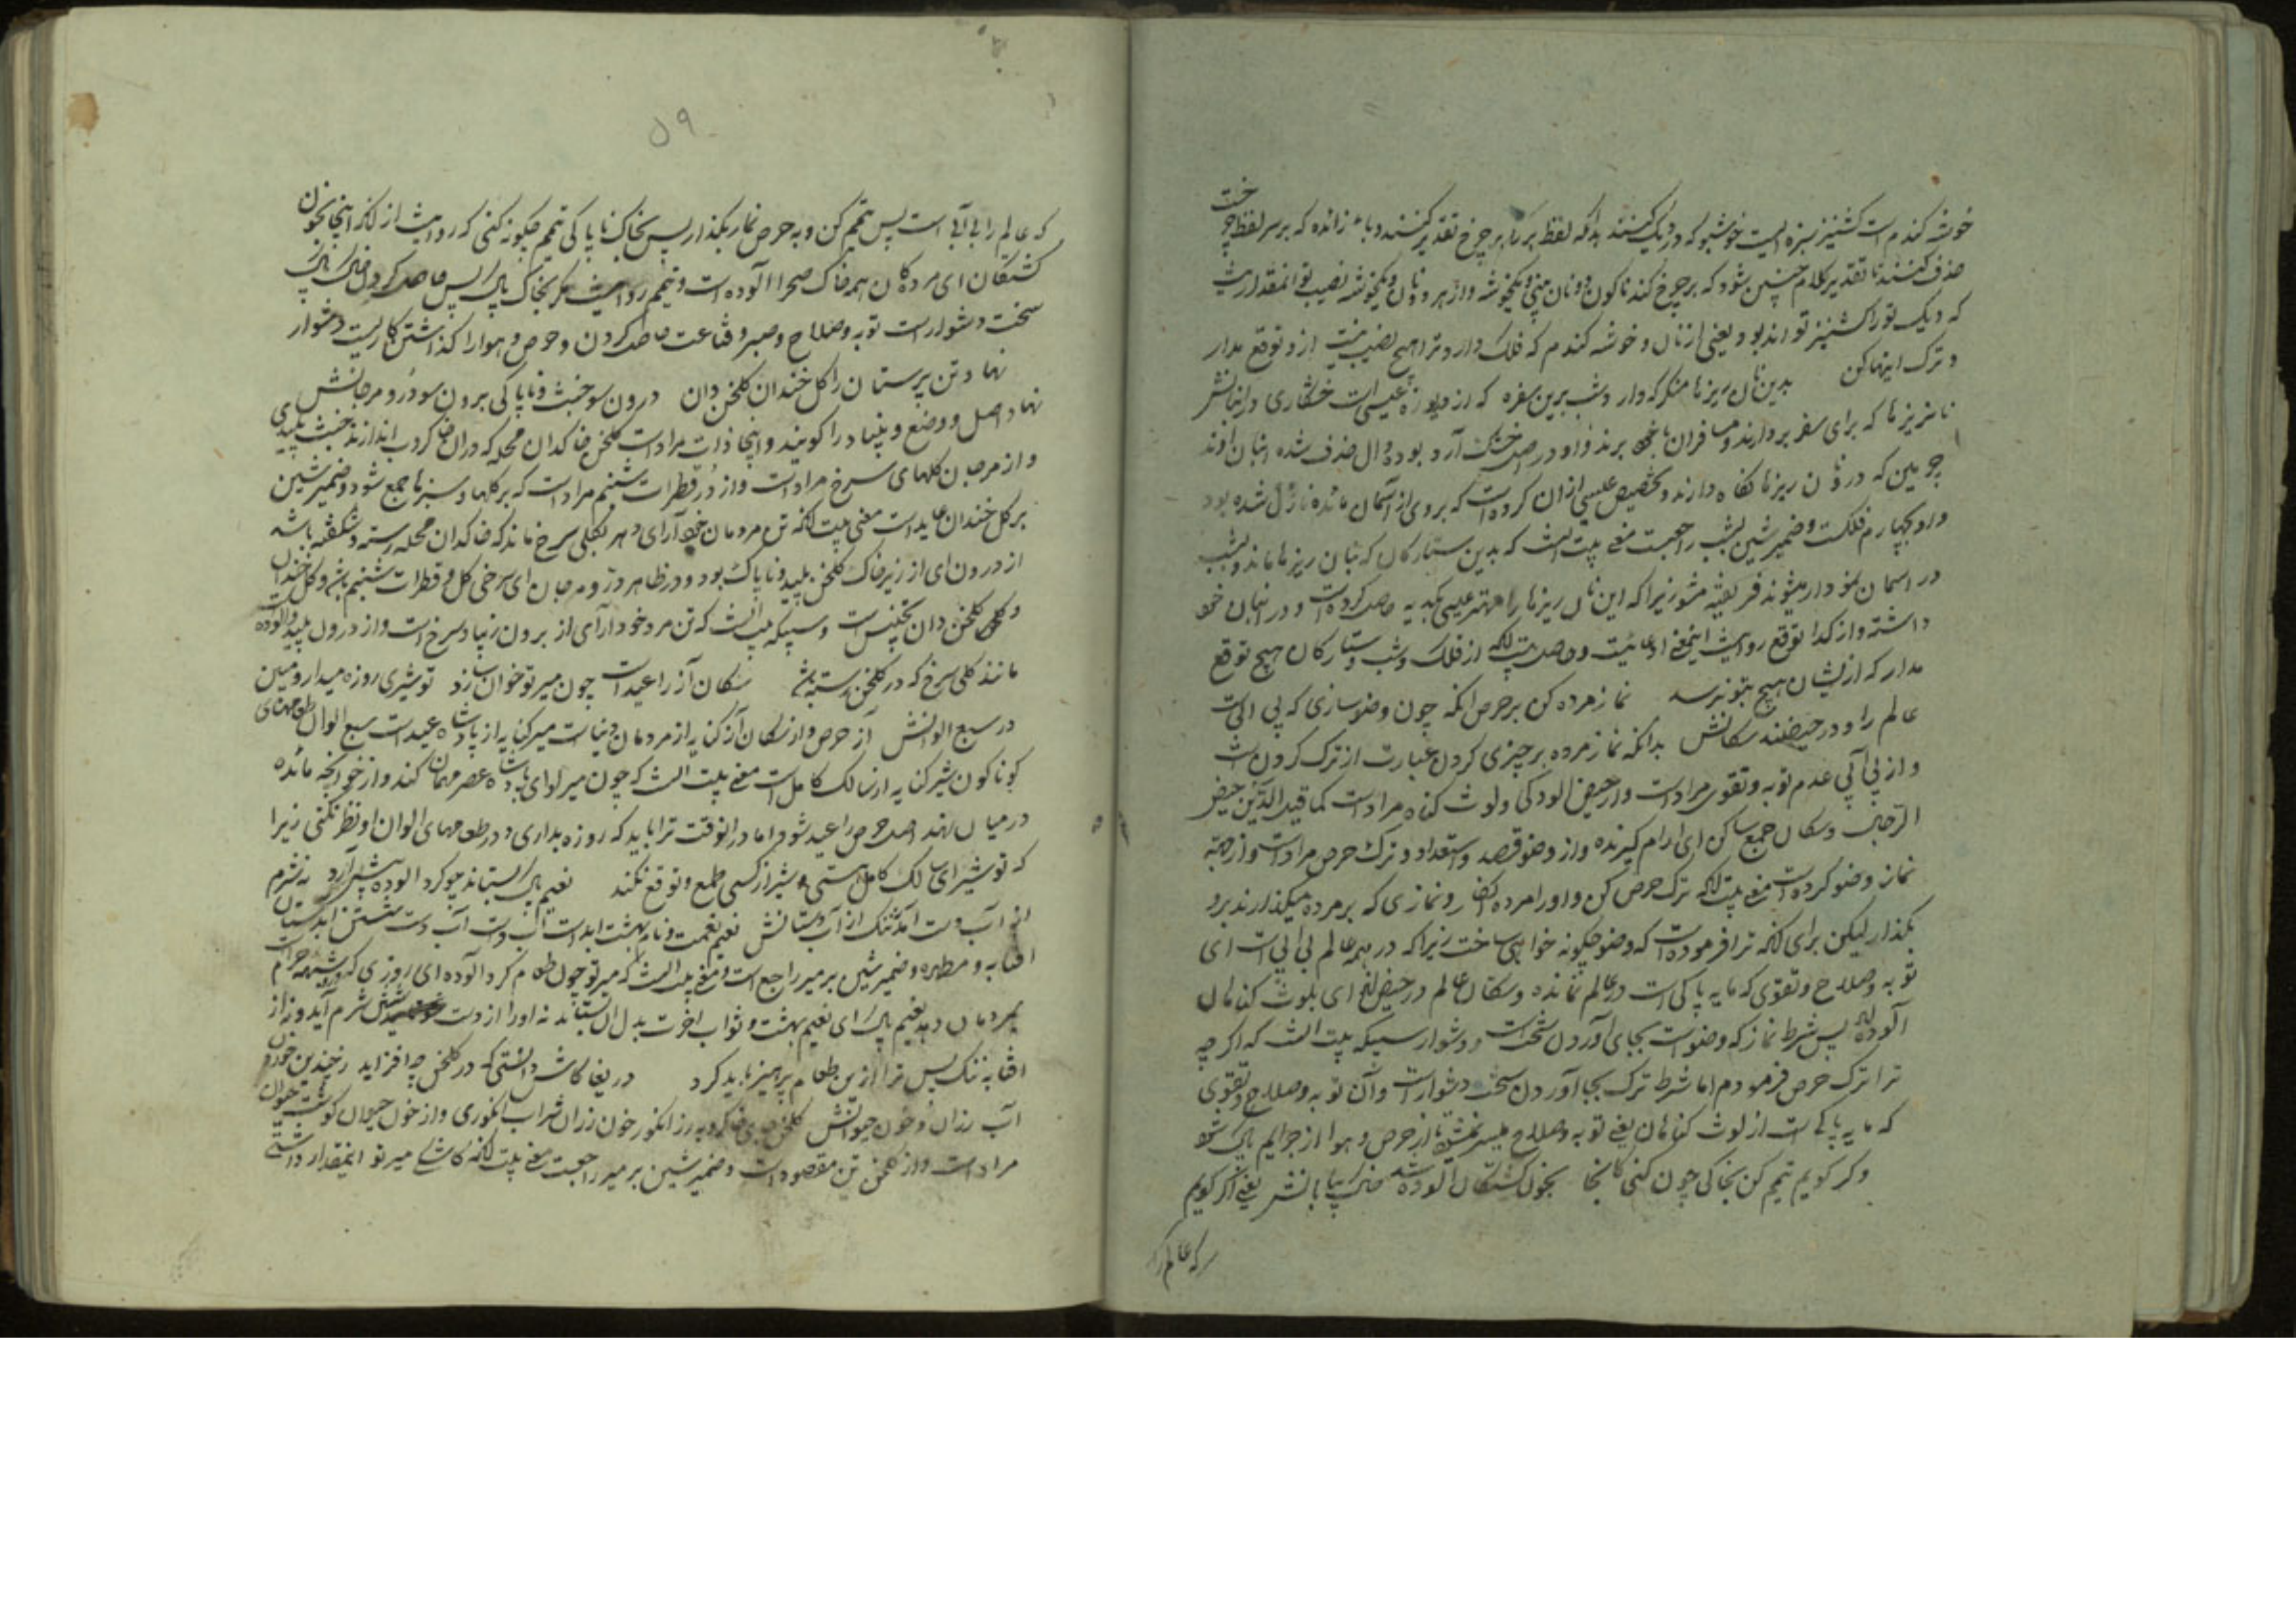 خوشه کندم است کشنیز سبزه ایست خوشبو که در دیک کنند بدانکه لفظ بر را بر چرخ تقدیر کنند و باء زائده که بر سر لفظ چرخست
حذف کنند تا تقدیر کلام چنین شود که بر چرخ کند ناکون دو نان بینی و یکخوشه و از هر دو نان و یکخوشه نصیب تو انمقدار نیست
که دیک تو را کشنیز تواند بود یعنی از نان و خوشه کندم که فلک دارد ترا هیچ نصیب نیست ازو توقع مدار
و ترک اینها کن بدین نان ریزها منکر که دارد شب برین سفره که از دریوزه عیسی است خشکاری در انبانش
نان ریزها که برای سفر بردارند و مسافران با خود برند و او در اصل خشک آرد بوده دال حذف شده انبان افند
چرمین که درو نان ریزها نکاه دارند و تخصیص عیسی از ان کرده است که بروی از آسمان مائده نازل شده بود
و او بچهارم فلکست و ضمیر شین بشب راجعست معنی بیت انست که بدین ستارکان که بنان ریزها ماند و بشب
در اسمان نمودار میشوند فریفته مشو زیرا که این نان ریزها را مهتر عیسی بکدیه حاصل کرده است و در انبان خود
داشته و از کدا توقع روا نیست اینمعنی ادعائیست و حاصل بیت انکه از فلک و شب و ستارکان هیچ توقع
مدار که ازیشان هیچ بتو نرسد نماز مرده کن بر حرص انکه چون وضو سازی که بی ابی است
عالم را و در حیضند سکانش بدانکه نماز مرده بر چیزی کردن عبارت از ترک کردن است
و از بی آبی عدم توبه و تقوی مراد است و از حیض الودکی و لوث کناه مراد است کما قیل الدین حیض
الرجال و سکان جمع ساکن ای ارام کیرنده و از وضو قصد و استعداد و ترک حرص مراد است و از جهة
نماز وضو کرده است معنی بیت انکه ترک حرص کن و او را مرده انکار و نمازی که بر مرده میکذارند برو
بکذار لیکن برای انکه ترا فرموده است که وضو چکونه خواهی ساخت زیرا که در همه عالم بی ابی است ای
توبه و صلاح و تقوی که مایه پاکی است در عالم نمانده و سکان عالم در حیض اند ای بلوث کناهان
آلوده اند پس شرط نماز که وضوست بجای آوردن سخت و دشوار است بیت انست که اکر چه
ترا ترک حرص فرمودم اما شرط ترک بجا آوردن سخت دشوار است و آن توبه و صلاح و تقوی
که مایه پاکی است از لوث کناهان یعنی توبه و صلاح میسر نمیشود تا از حرص و هوا از جرایم پاک شود
وکر کویم تیمم کن بخاکی چون کنی کانجا بخون کشتکان آلوده شد خاک بیابانش یعنی اکر کویم
که عالم را
۵۹
که عالم را بی آبی است پس تیمم کن و بر حرص نماز بکذار پس بخاک ناپاکی تیمم چکونه کنی که روا نیست از انکه اینجا بخون
کشتکان ای مردکان همه خاک صحرا آلوده است و تیمم روا نیست مکر بخاک پاک پس حاصل کردن خاک پاک
سخت دشوار است توبه و صلاح و صبر و قناعت حاصل کردن و حرص و هوا را کذاشتن کاریست دشوار
نهاد تن پرستان را کل خندان کلخن دان درون سو خبث و ناپاکی برون سو در و مرجانش
نهاد اصل و وضع و بنیاد را کویند و اینجا ذات مراد است کلخن خاکدان محله که دران خاکروب اندازند خبث پلیدی
و از مرجان کلهای سرخ مراد است و از در قطرات شبنم مراد است که بر کلها و سبزها جمع شود و ضمیر شین
بر کل خندان عاید است معنی بیت انکه تن مردمان خود آرای در هر بکلی سرخ ماند که خاکدان محله رسته و شکفته باشد
از درون ای از زیر خاک کلخن پلید و ناپاک بود و در ظاهر در و مرجان ای سرخی کل و قطرات شبنم باشد و کل خندان
و کلخن دان تجنیس است و سیکه بیت انست که تن مرد خود آرای از برون زیبا و سرخ است و از درون پلید و آلوده است
مانند کلی سرخ که در کلخن رسته باشد سکان آز را عید است چون میر تو خوان سازد تو شیری روزه میدار و مبین
در سبع الوانش آز حرص و از سکان آز کنایه از مردمان دنیاست میر کنایه از پادشاه عید است سبع الوان طعامهای
کوناکون شیر کنایه از سالک کامل است معنی بیت انست که چون میر تو ای پادشاه عصر مهمان کند و از خوانچه مائده
در میان نهد اهل حرص را عید شود اما در انوقت ترا باید که روزه بداری و در طعامهای الوان او نظر نکنی زیرا
که تو شیر ای سالک کامل هستی و شیر از کسی طمع و توقع نکند نعیم پاک بستاند چو کرد آلوده پیش آرد نه شرم
از آب دست آید نه ننک از آب دستانش نعیم نعمت و نام بهشت ابد است آب دست آب دست شستن ابدستان
افتابه و مطهره و ضمیر شین بر میر راجع است و معنی بیت انست که میر تو چون طعام کرد آلوده ای روزی که در شبهه حرام است
بمردمان دهد نعیم پاک ای نعیم بهشت و ثواب اخرت بدل ان بستاند نه او را از دست شستن شرم آید و نه از
افتابه ننک پس ترا ازین طعام پرهیز باید کرد دریغا کاش دانستی که در کلخن چه افزاید
آب رزان و خون حیوانش کلخن جای خاکروبه رز انکور خون رزان شراب انکوری و از خون حیوان کوشت حیوان
مراد است و از کلخن تن مقصود است و ضمیر شین بر میر راجعست معنی بیت انکه کاشکی میر تو اینقدار دانستی